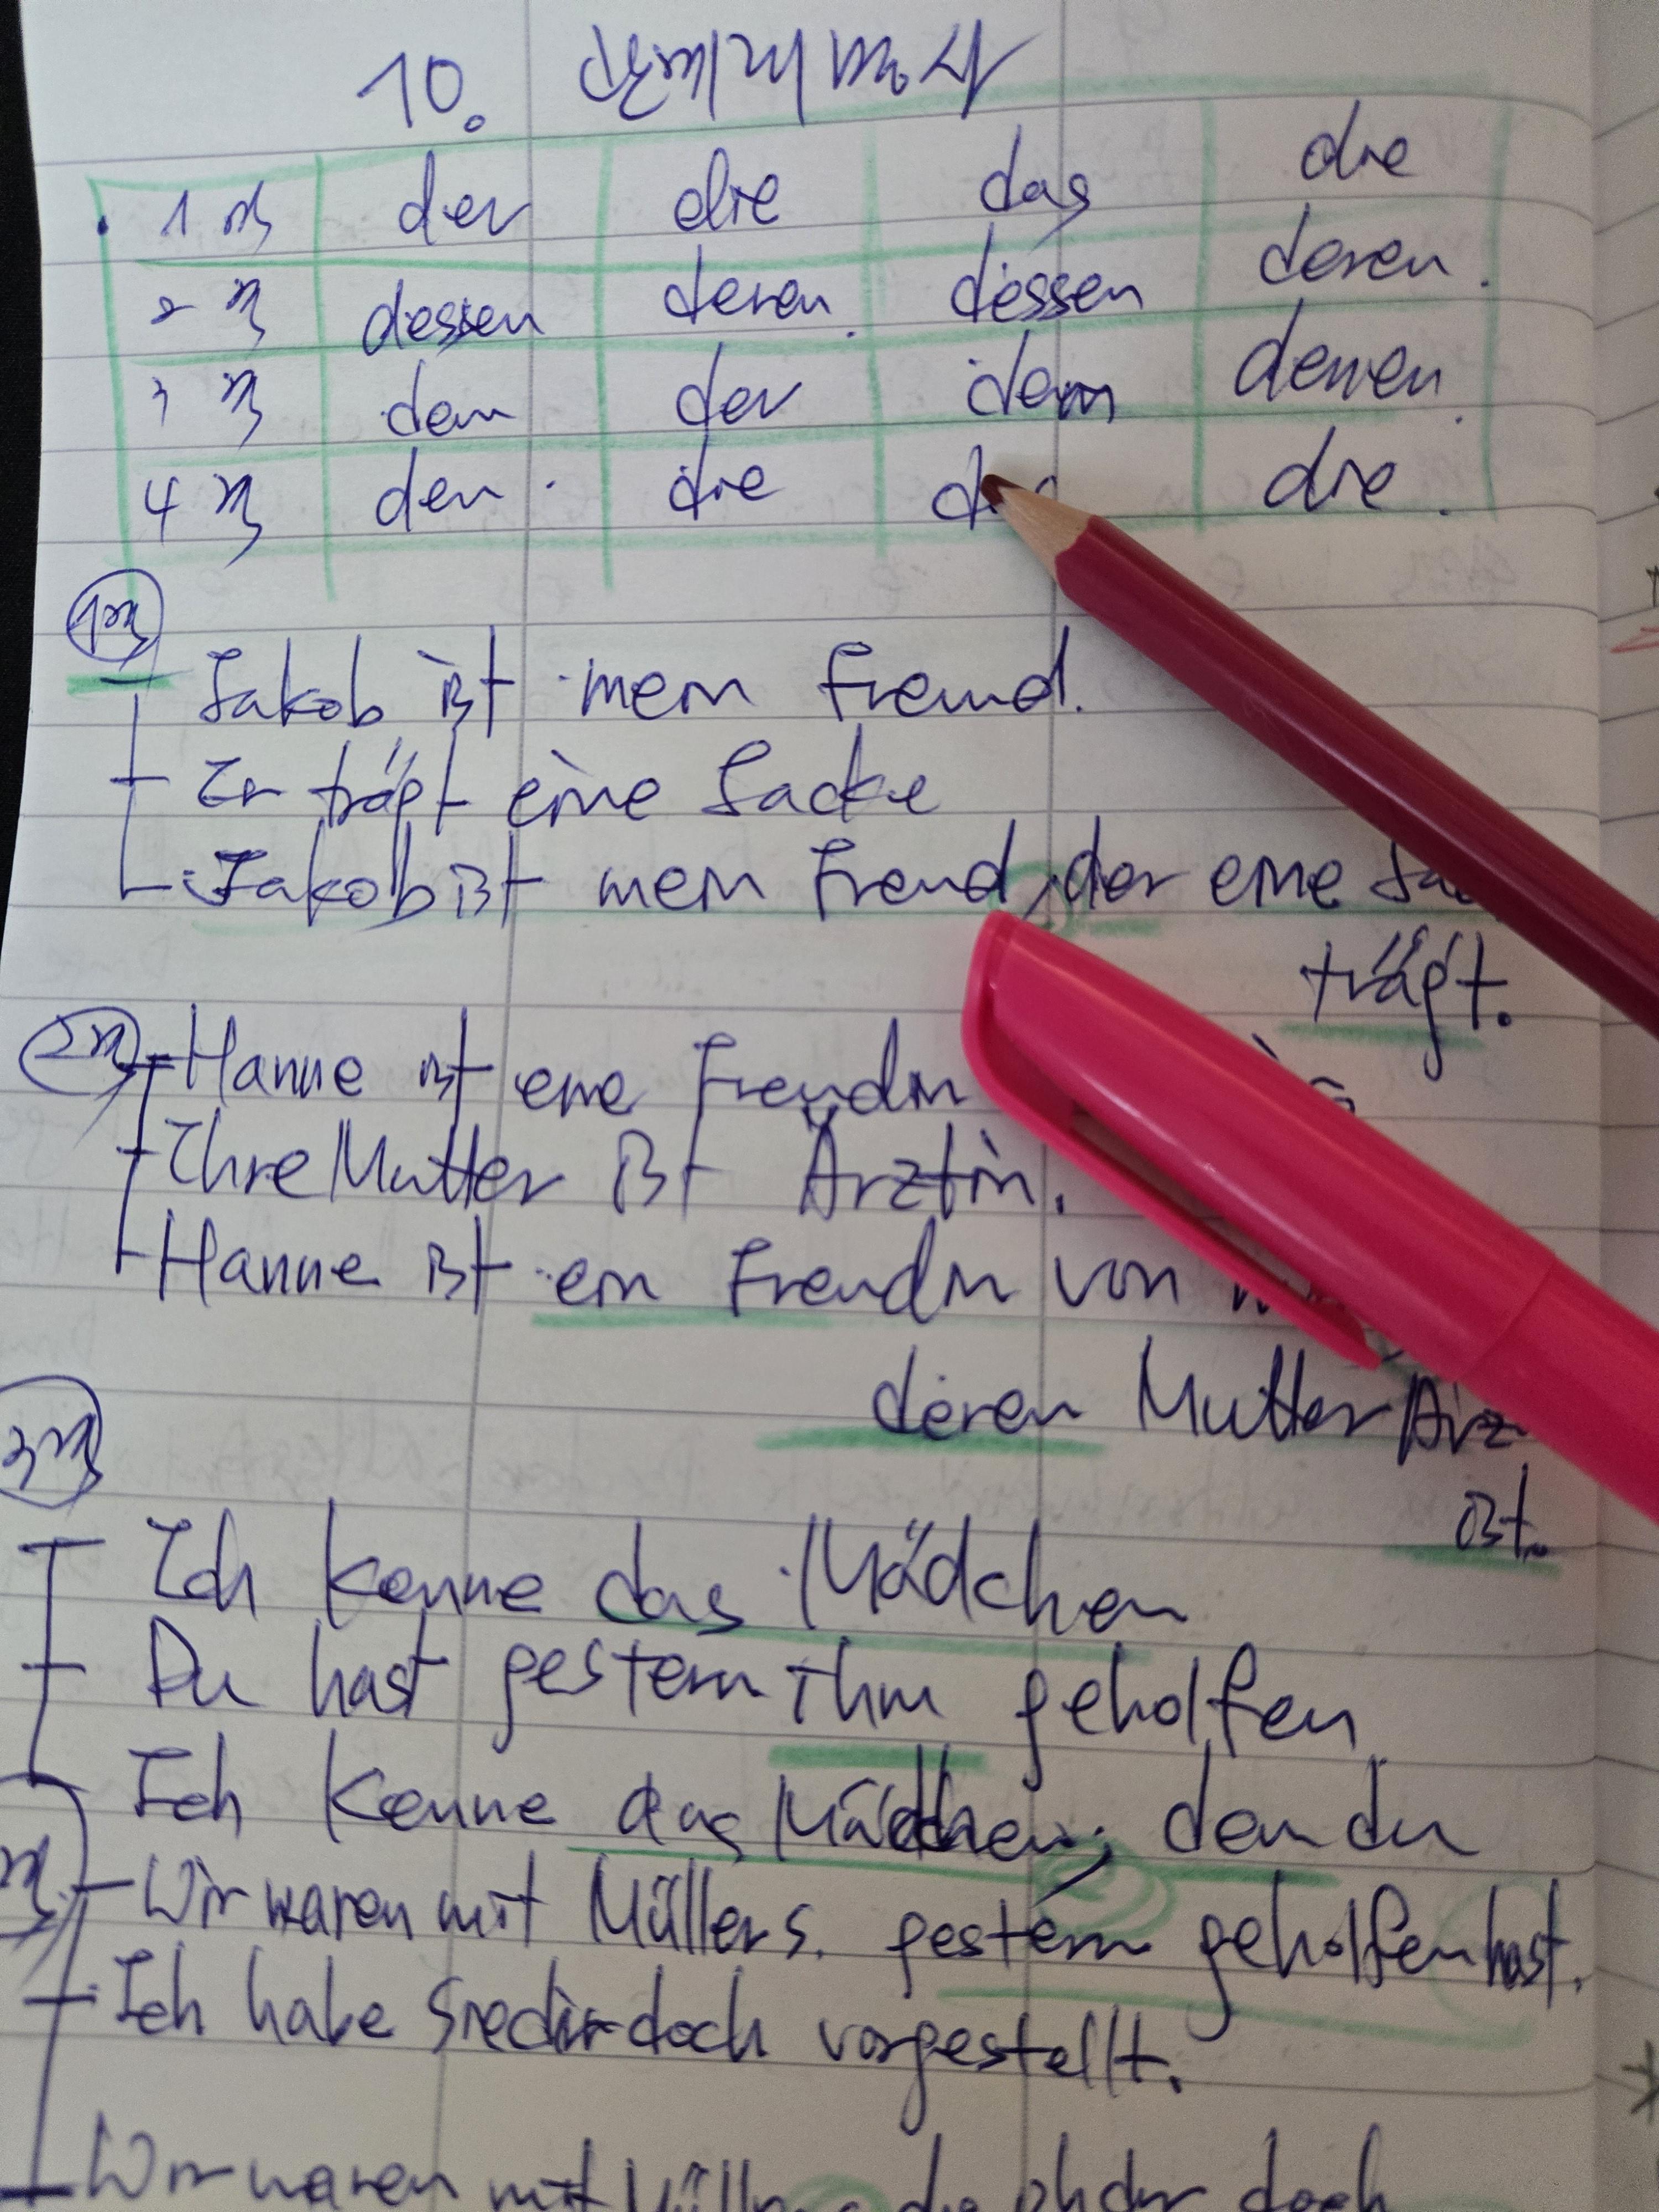 10. 관계대명사
1격 der die das die
2격 dessen deren dessen deren.
3격 dem der dem denen.
4격 den die die.
1격
Jakob ist mein Freund.
Er trägt eine Jacke
Jakob ist mein Freund, der eine
trägt.
2격 Hanne ist eine Freundin
Ihre Mutter ist Ärztin.
Hanne ist ein Freundin von
deren Mutter
ist.
3격
Ich kenne das Mädchen
Du hast gestern ihm geholfen
Ich kenne das Mädchen, dem du
gestern geholfen hast.
격 Wir waren mit Müllers.
Ich habe sie dir doch vorgestellt.
Wir waren mit doch